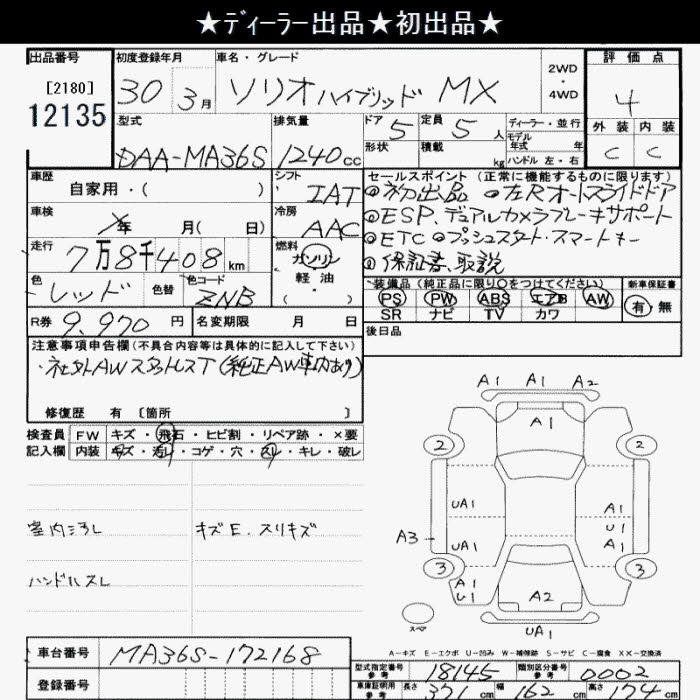 ★ディーラー出品★初出品★
出品番号
[2180]
12135
初度登録年月
30 3月
車名・グレード
ソリオハイブリッド MX
2WD
・
4WD
評価点
4
外装 内装
C C
型式
DAA-MA36S
排気量
1240cc
ドア 5
定員 5人
形状
積載 kg
ディーラー・並行
モデル
年式 年
ハンドル 左・右
車歴
自家用・( )
シフト
IAT
車検
年 月( 日)
冷房
AAC
走行
7万8千408km
燃料
ガソリン
軽油
( )
色
レッド
色替
色コード
ZNB
R券 9,970円
名変期限 月 日
セールスポイント (正常に機能するものに限ります)
◎初出品 ◎左Rオートスライドドア
◎ESP、デュアルカメラブレーキサポート
◎ETC ◎プッシュスタート・スマートキー
◎保証書、取説
装備品(純正品に限り○をつけてください)
PS PW ABS エアB AW
SR ナビ TV カワ
新車保証書
有・無
後日品
注意事項申告欄(不具合内容等は具体的に記入して下さい)
・社外AWスタットレスT(純正AW車内あり)
修復歴 有 〔箇所 〕
検査員
記入欄
FW キズ・飛石・ヒビ割・リペア跡・×要
内装 キズ・汚レ・コゲ・穴・スレ・キレ・破レ
室内ヨゴレ
キズE、スリキズ
ハンドルスレ
A1 A1 A2
A1
2 2
UA1
A1
U1
A3 UA1
A1
3 3
A1
U1
A2
スペア
UA1
A-キズ E-エクボ U-凹み W-補修跡 S-サビ C-腐食 XX-交換済
車台番号
MA36S-172168
登録番号
型式指定番号
参考
18145
類別区分番号
参考
0002
車庫証明用
参考
長さ 371cm
幅 162cm
高さ 174cm